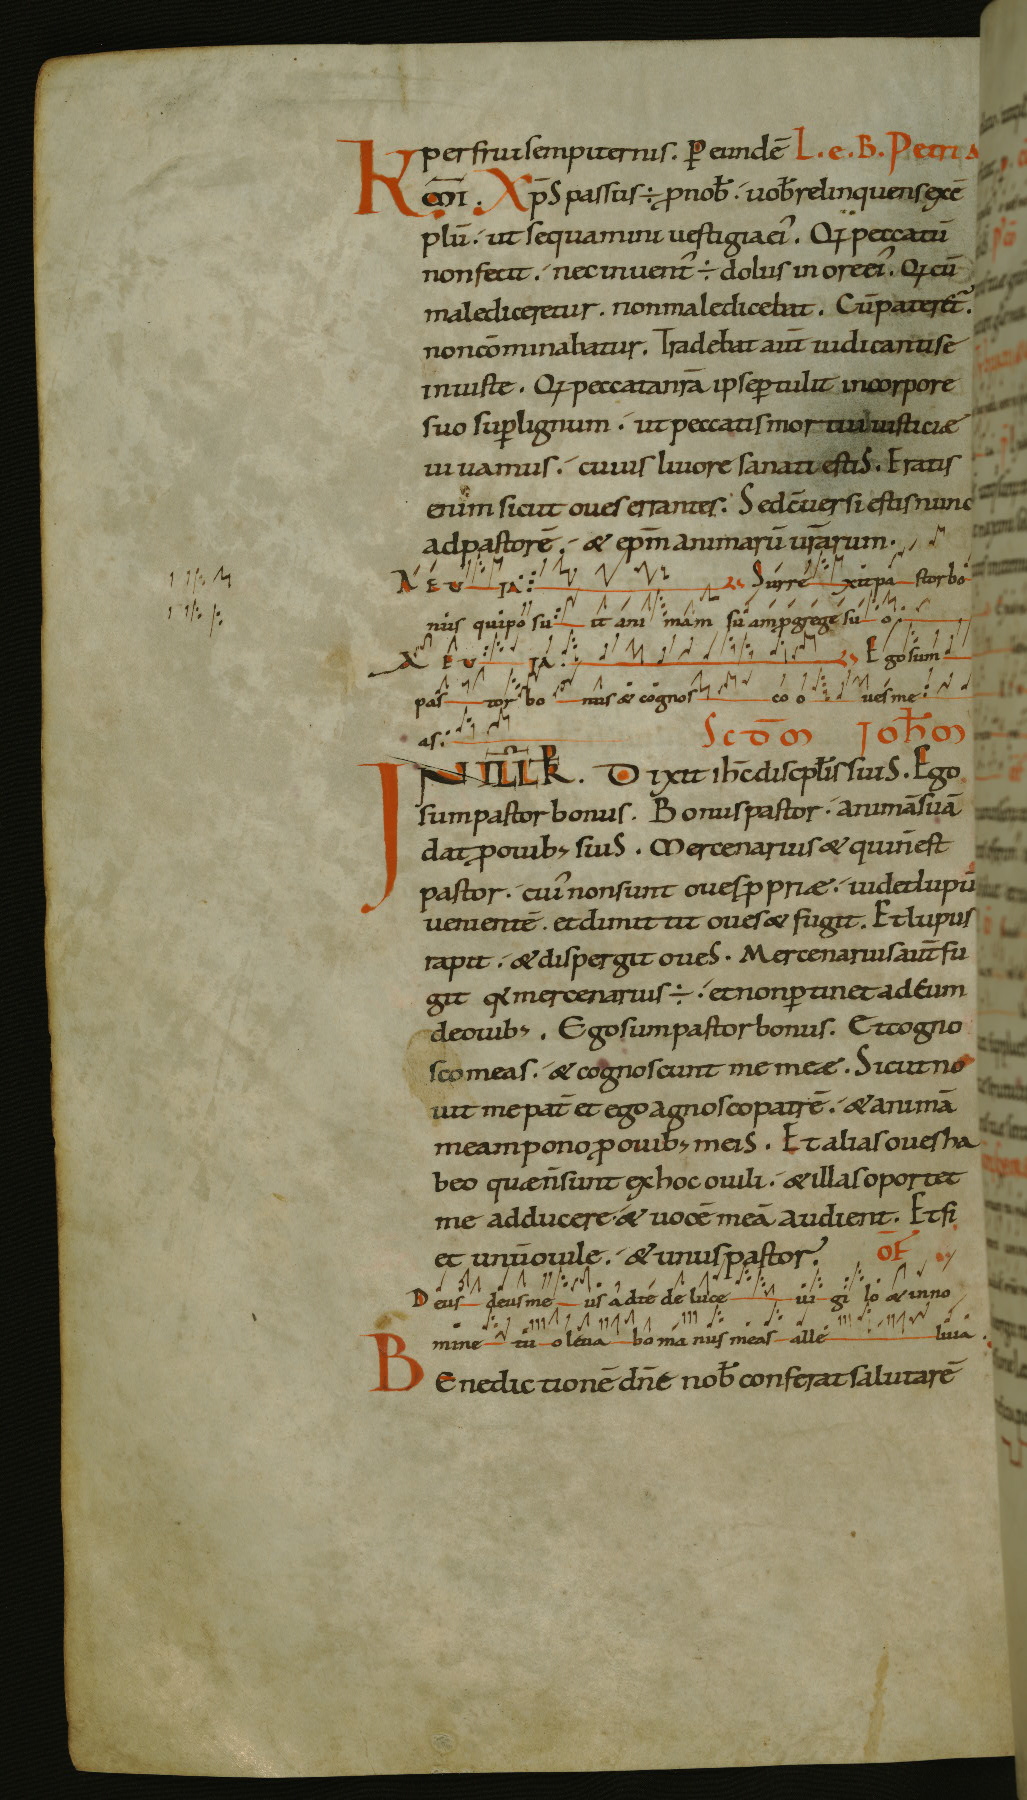 per frui sempiternis. P̄ eundē L. e. B. Petri A
Km̄i. Xp̄s passus ÷ ꝓ nob̄. uob̄ relinquens exē
plū. ut sequamini uestigia ei᾽. Qı peccatū
non fecit. nec inuent᾽ ÷ dolus in ore ei᾽. Qı cū
malediceretur. non maledicebat. Cū pateret᷑.
non cōminabatur. Tradebat aut̄ iudicanti se
iniuste. Qı peccata nr̄a ipse ꝑtulit in corpore
suo sup̄ lignum. ut peccatis mortui iusticiæ
uiuamus. cuius liuore sanati estis. Eratis
enim sicut oues errantes. Sed c̄uersi estis nunc
ad pastorē. & ep̄m animarū ur̄arum.
A E U IA: Surre xit pa stor bo
nus qui po su it ani mam suam ꝓ grege su o.
A E U IA: Ego sum
pas tor bo nus & cognos co o ues me
as:
Sc̄dm Joh̄m
IN ILL R. Dixit ih̄c discpl̄is suis. Ego
sum pastor bonus. Bonus pastor. animā suā
dat ꝓ ouibꝫ suis. Mercenarius & qui n̄ est
pastor. cui᾽ non sunt oues ꝓpriæ. uidet lupū
uenientē. et dimittit oues & fugit. Et lupus
rapit. & dispergit oues. Mercenarius aut̄ fu
git qı mercenarius ÷. et non ꝑtinet ad eum
de ouibꝫ. Ego sum pastor bonus. Et cogno
sco meas. & cognoscunt me meæ. Sicut no
uit me pat̄ et ego agnosco patrē. & animā
meam pono ꝓ ouibꝫ meis. Et alias oues ha
beo quæ n̄ sunt ex hoc ouili. & illas oportet
me adducere. & uocē meā audient. Et fi
et unū ouile. & unus pastor. OF
Deus deus me us ad te de luce ui gi lo & in no
mine tu o leua bo manus meas alle luia.
Benedictionē dn̄e nob̄ conferat salutarē